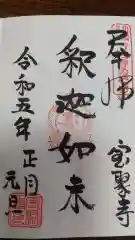 奉拝
釈迦如来
宝聚寺
令和五年正月
元旦